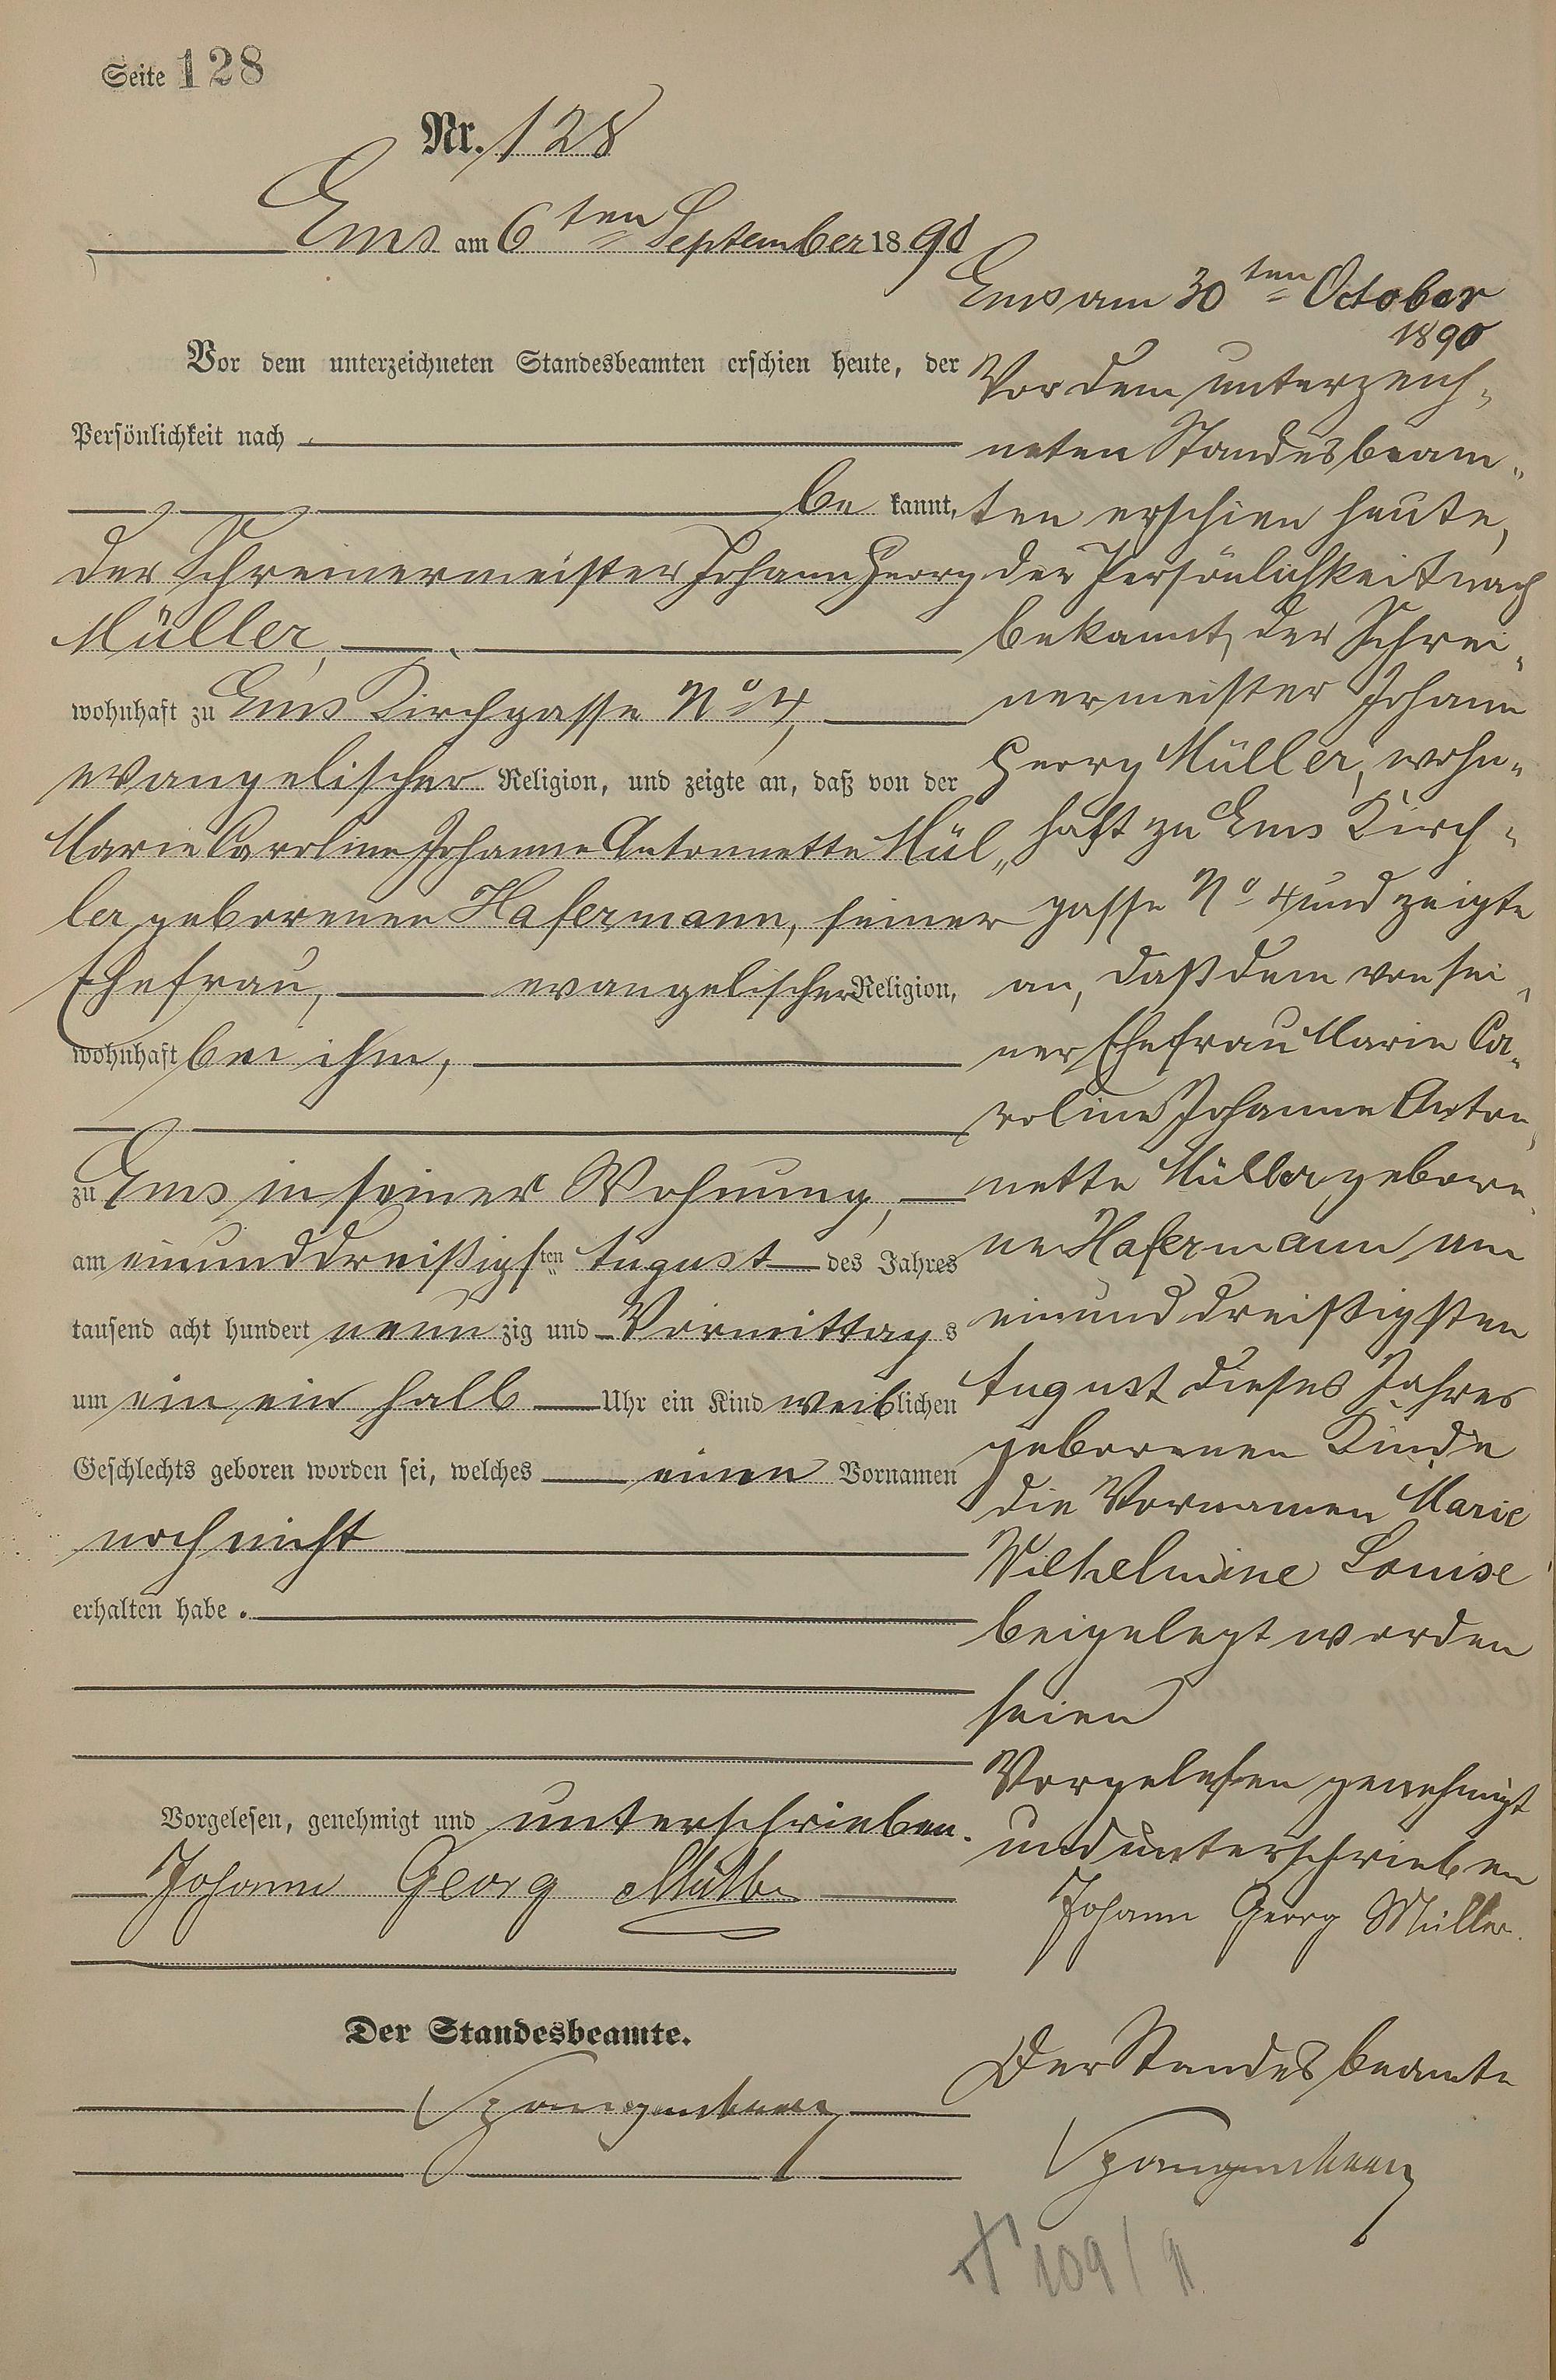 Seite 128
Nr. 128
Ems am 6ten September 1890
Vor dem unterzeichneten Standesbeamten erschien heute, der
Persönlichkeit nach
be kannt,
der Schreinermeister Johann Georg
Müller,
wohnhaft zu Ems Kirchgasse No 4,
evangelischer Religion, und zeigte an, daß von der
Marie Caroline Johanne Antonnette Mül„
ler geborenen Hafermann, seiner
Ehefrau, evangelischer Religion,
wohnhaft bei ihm,
zu Ems in seiner Wohnung,
am einunddreißigsten August des Jahres
tausend acht hundert neun zig und Vormittags
um ein ein halb Uhr ein Kind weiblichen
Geschlechts geboren worden sei, welches einen Vornamen
noch nicht
erhalten habe.
Vorgelesen, genehmigt und unterschrieben.
Johann Georg Müller
Der Standesbeamte.
Ems am 30ten October
1890
Vor dem unterzeich„
neten Standesbeam„
ten erschien heute,
der Persönlichkeit nach
bekannt, der Schrei„
nermeister Johann
Georg Müller, wohn„
haft zu Ems Kirch„
gasse No 4 und zeigte
an, daß dem von sei„
ner Ehefrau Marie Ca„
roline Johanne Anton„
nette Müller gebore„
ne Hafermann am
einunddreißigsten
August dieses Jahres
geborenen Kinde
die Vornamen Marie
Wilhelmine Louise
beigelegt worden
seien
Vorgelesen genehmigt
und unterschrieben
Johann Georg Müller.
Der Standesbeamte